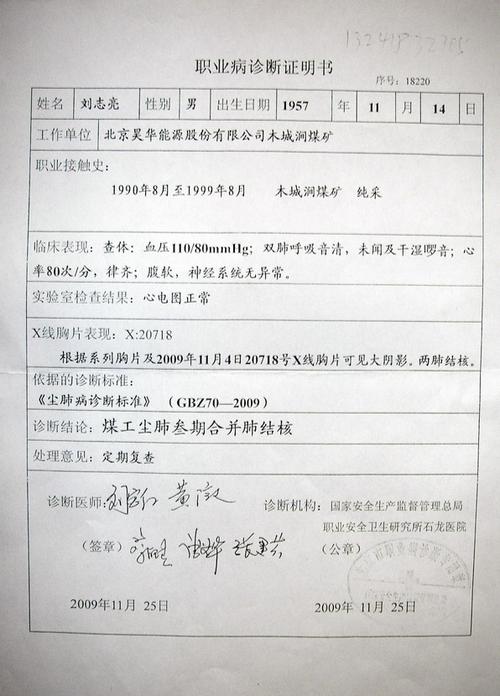 职业病诊断证明书
序号：18220
姓名 刘志亮 性别 男 出生日期 1957 年 11 月 14 日
工作单位 北京昊华能源股份有限公司木城涧煤矿
职业接触史：
1990年8月至1999年8月 木城涧煤矿 纯采
临床表现：查体：血压110/80mmHg；双肺呼吸音清，未闻及干湿啰音；心
率80次/分，律齐；腹软，神经系统无异常。
实验室检查结果：心电图正常
X线胸片表现：X:20718
根据系列胸片及2009年11月4日20718号X线胸片可见大阴影。两肺结核。
依据的诊断标准：
《尘肺病诊断标准》（GBZ70—2009）
诊断结论：煤工尘肺叁期合并肺结核
处理意见：定期复查
诊断医师：
诊断机构：国家安全生产监督管理总局
职业安全卫生研究所石龙医院
（签章）
（公章）
2009年11月 25日
2009年 11月 25日